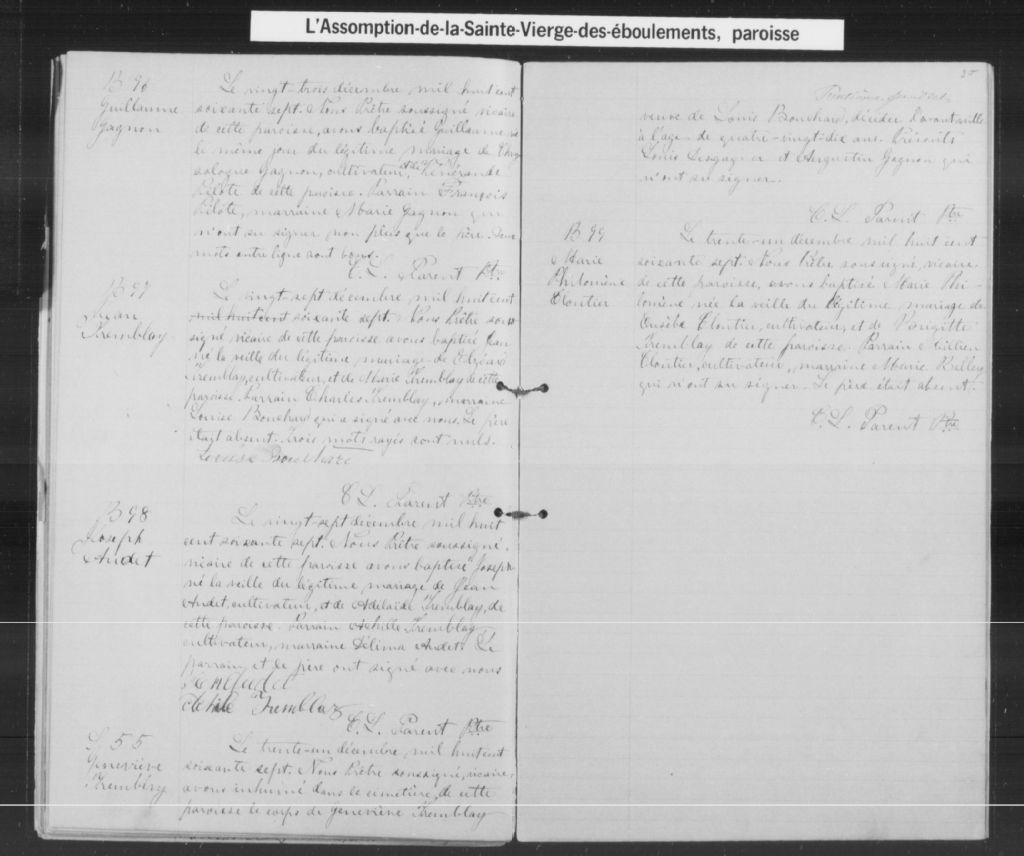 L'Assomption-de-la-Sainte-Vierge-des-éboulements, paroisse
B 96
Guillaume
Gagnon
Le vingt-trois décembre mil huit cent
soixante sept. Nous Prêtre soussigné vicaire
de cette paroisse, avons baptisé Guillaume né
le même jour du légitime mariage de
Gagnon, cultivateur, et de Vénérande
Pilote de cette paroisse. Parrain François
Pilote, marraine Marie Gagnon qui
n'ont su signer non plus que le père. Deux
mots entre ligne sont bons.
C. L. Parent Ptre
B 97
Jean
Tremblay
Le vingt-sept décembre, mil huit cent
mil huit cent soixante sept. Nous Prêtre sous
signé vicaire de cette paroisse avons baptisé Jean
né la veille du légitime mariage de
Tremblay, cultivateur, et de Marie Tremblay de cette
paroisse. Parrain Charles Tremblay, marraine
Louise Bouchard qui a signé avec nous. Le père
était absent. Trois mots rayés sont nuls.
Louise Bouchard
C. L. Parent Ptre
B 98
Joseph
Audet
Le vingt-sept décembre mil huit
cent soixante sept. Nous Prêtre soussigné,
vicaire de cette paroisse avons baptisé Joseph
né la veille du légitime mariage de Jean
Audet, cultivateur, et de Adélaide Tremblay, de
cette paroisse. Parrain Achille Tremblay
cultivateur, marraine Délima Audet. Le
parrain et le père ont signé avec nous
Tremblay
C. L. Parent Ptre
S. 55
Geneviève
Tremblay
Le trente-un décembre, mil huit cent
soixante sept. Nous Prêtre soussigné, vicaire,
avons inhumé dans le cimetière de cette
paroisse le corps de Geneviève Tremblay
veuve de Louis Bouchard, décédée l'avant veille
à l'age de quatre-vingt-dix ans. Présents
Louis et Augustin Gagnon qui
n'ont su signer.
C. L. Parent Ptre
B 99
Marie
Philomène
Cloutier
Le trente-un décembre mil huit cent
soixante sept. Nous Prêtre soussigné, vicaire
de cette paroisse, avons baptisé Marie Phi-
lomène, née la veille du légitime mariage de
Eusèbe Cloutier, cultivateur, et de
Tremblay de cette paroisse. Parrain
Cloutier, cultivateur, marraine Marie
qui n'ont su signer. Le père était absent.
C. L. Parent Ptre